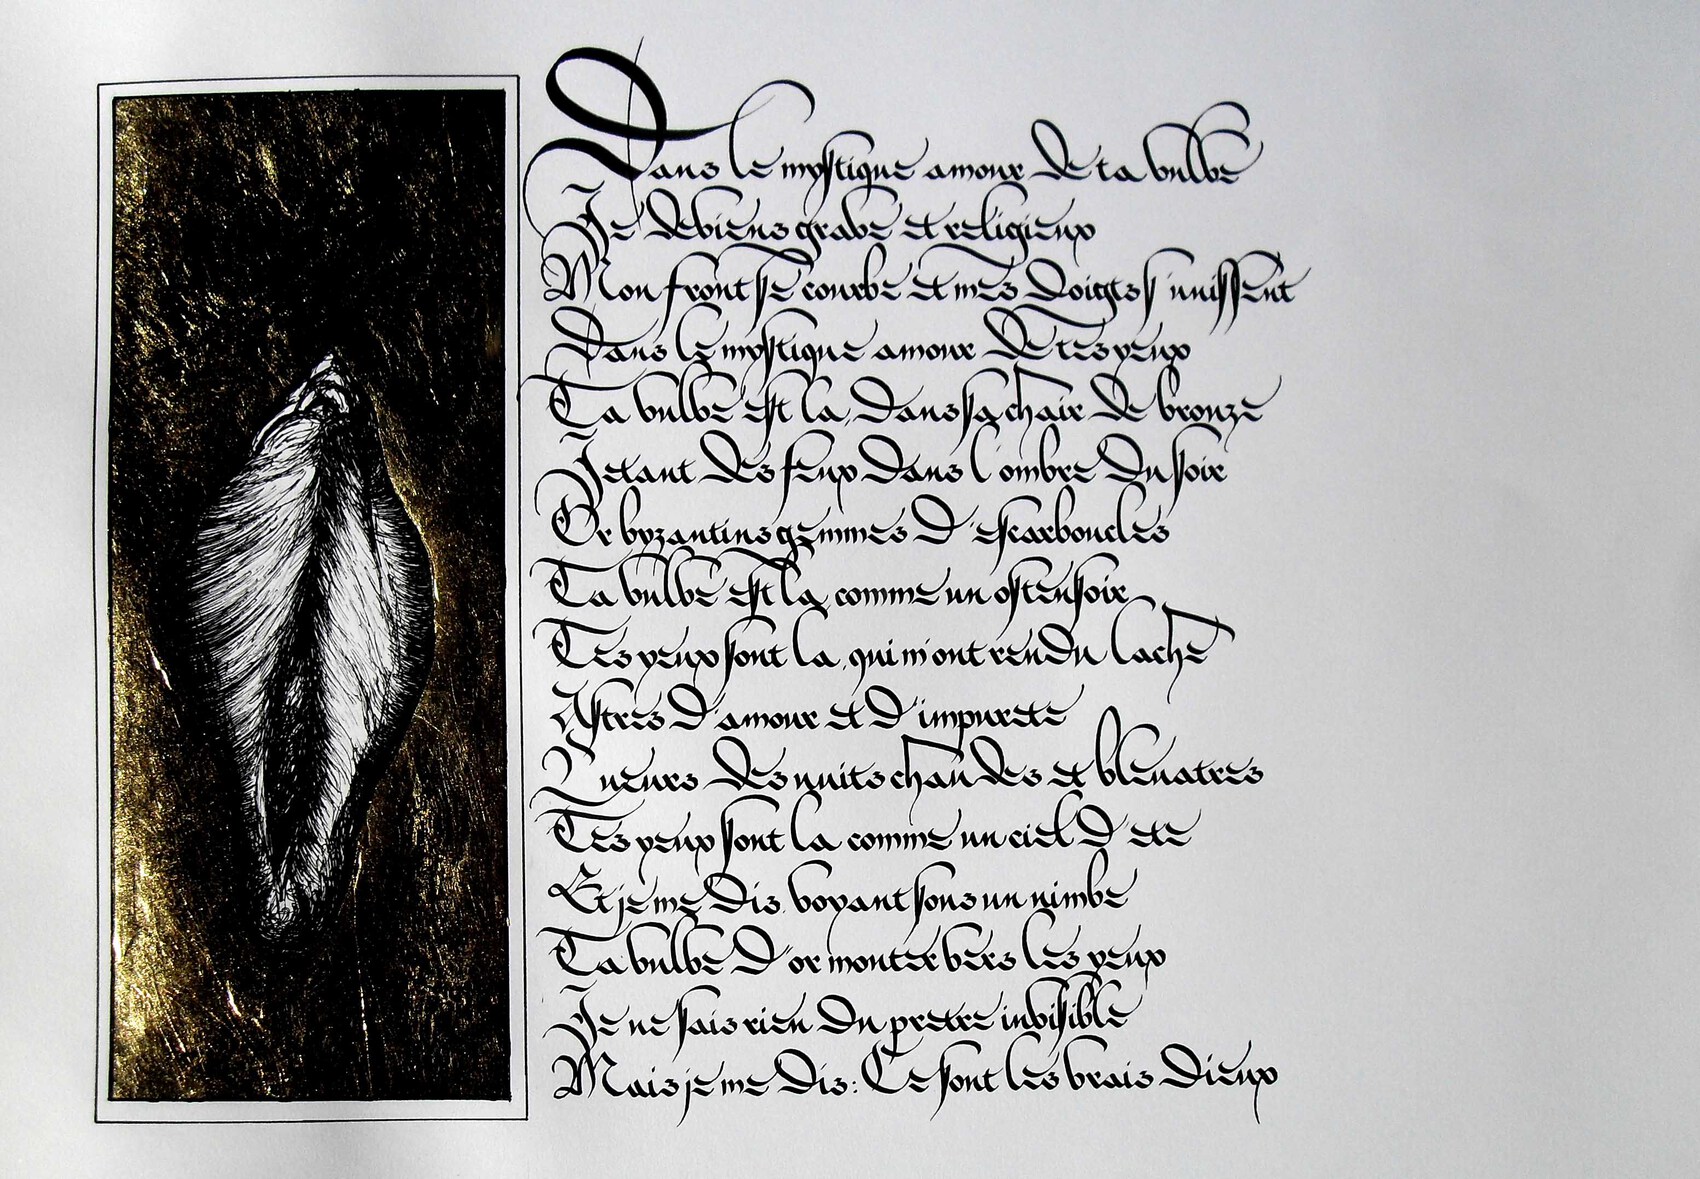 Dans le mystique amour de ta vulve
Je deviens grave et religieux
Mon front se courbe et mes doigts s'unissent
Dans le mystique amour de tes yeux
Ta vulve est la, dans sa chair de bronze
Jetant des feux dans l'ombre du soir
Or byzantins gemmes d'escarboucles
Ta vulve est la, comme un ostensoir
Tes yeux sont la, qui m'ont rendu lache
Astres d'amour et d'impurete
Lueurs des nuits chaudes et bleuatres
Tes yeux sont la comme un ciel d'ete
Et je me dis, voyant sous un nimbe
Ta vulve d'or monter vers les yeux
Je ne sais rien du pretre invisible
Mais je me dis: Ce sont les vrais dieux